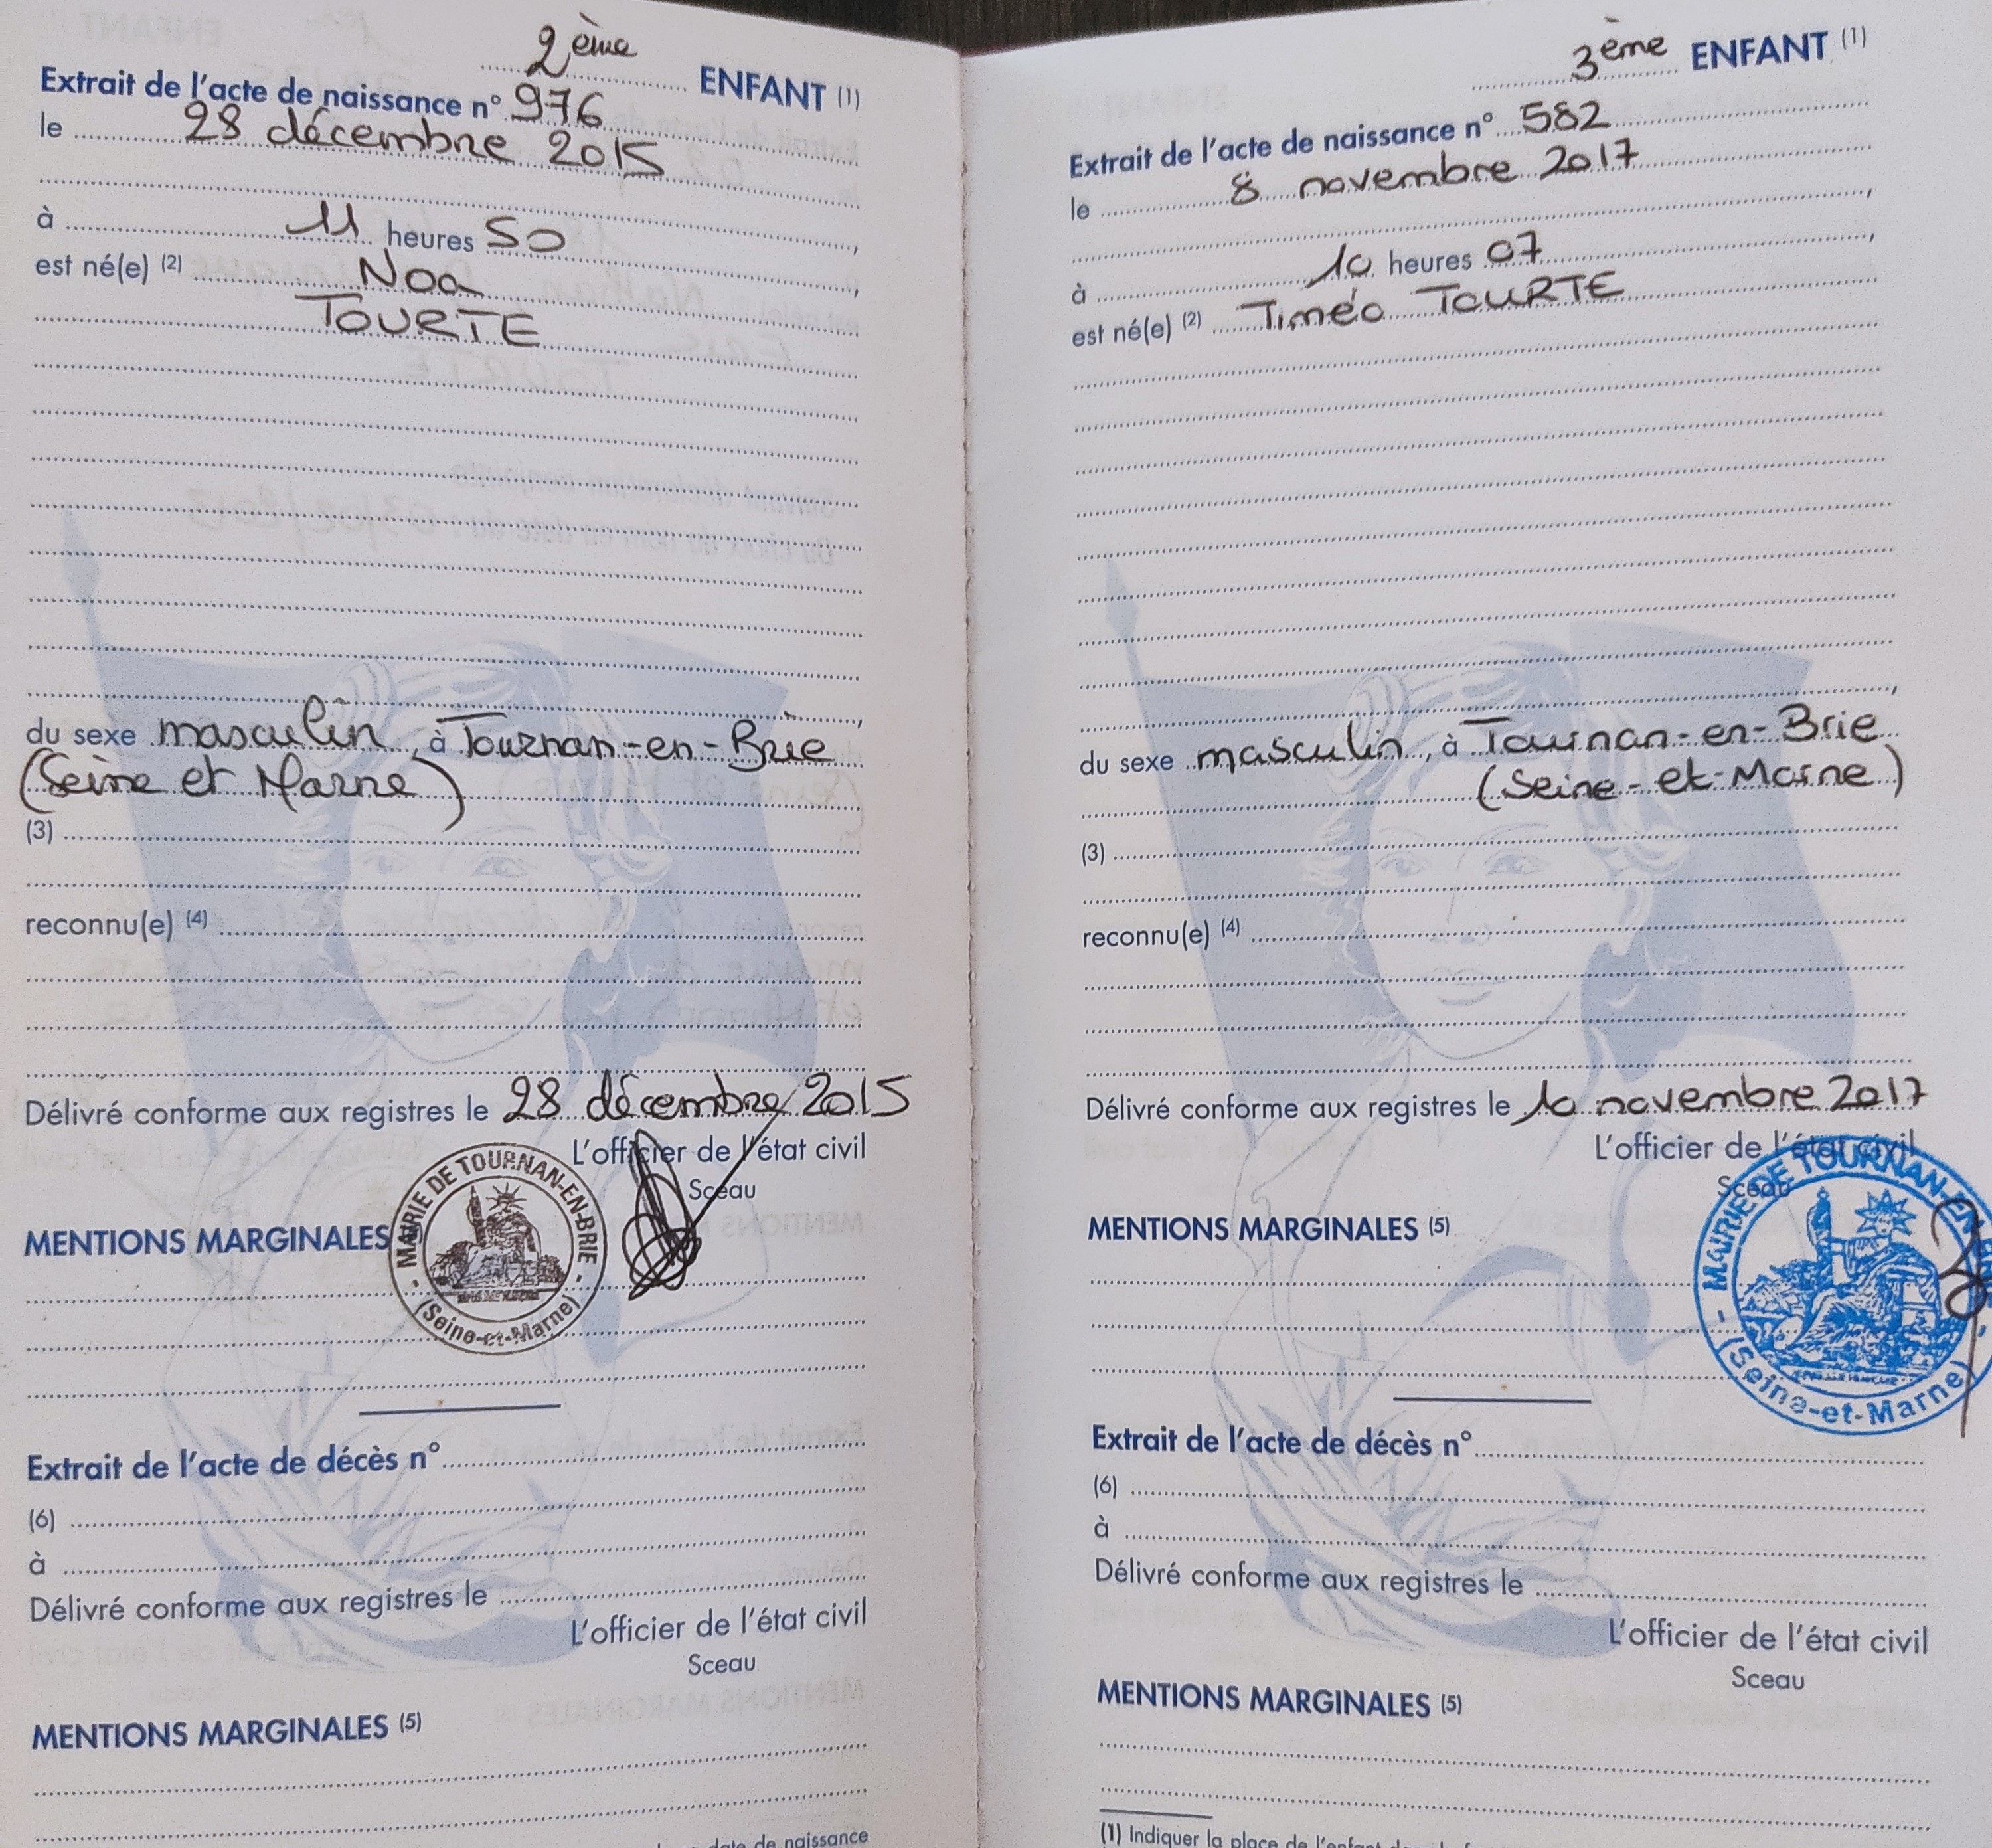 2ème ENFANT (1)
Extrait de l'acte de naissance n° 976
le 28 décembre 2015
à 11 heures 50
est né(e) (2) Noa
TOURTE
du sexe masculin, à Tournan-en-Brie
(Seine et Marne)
(3)
reconnu(e) (4)
Délivré conforme aux registres le 28 décembre 2015
L'officier de l'état civil
Sceau
MAIRIE DE TOURNAN-EN-BRIE
(Seine-et-Marne)
MENTIONS MARGINALES
Extrait de l'acte de décès n°
(6)
à
Délivré conforme aux registres le
L'officier de l'état civil
Sceau
MENTIONS MARGINALES (5)
date de naissance
3ème ENFANT (1)
Extrait de l'acte de naissance n° 582
le 8 novembre 2017
à 10 heures 07
est né(e) (2) Timéo TOURTE
du sexe masculin, à Tournan-en-Brie
(Seine-et-Marne)
(3)
reconnu(e) (4)
Délivré conforme aux registres le 10 novembre 2017
L'officier de l'état civil
Sceau
MAIRIE DE TOURNAN-EN-BRIE
(Seine-et-Marne)
MENTIONS MARGINALES (5)
Extrait de l'acte de décès n°
(6)
à
Délivré conforme aux registres le
L'officier de l'état civil
Sceau
MENTIONS MARGINALES (5)
(1) Indiquer la place de l'enfant